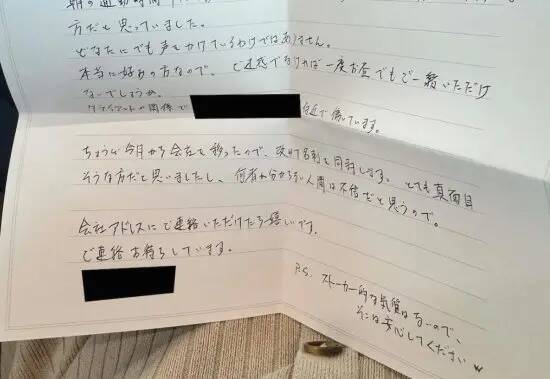 朝の通勤時間
方だと思っていました。
どなたにでも声をかけているわけではありません。
本当に好みの方なので、ご迷惑でなければ一度お昼でもご一緒いただけ
ないでしょうか。
クライアントの関係で 付近で働いています。
ちょうど今月から会社を移ったので、改めて名刺を同封します。とても真面目
そうな方だと思いましたし、何者か分からない人間は不信だと思うので。
会社アドレスにご連絡いただけたら嬉しいです。
ご連絡お待ちしています。
P.S. ストーカー的な気質はないので、
そこは安心してくださいw